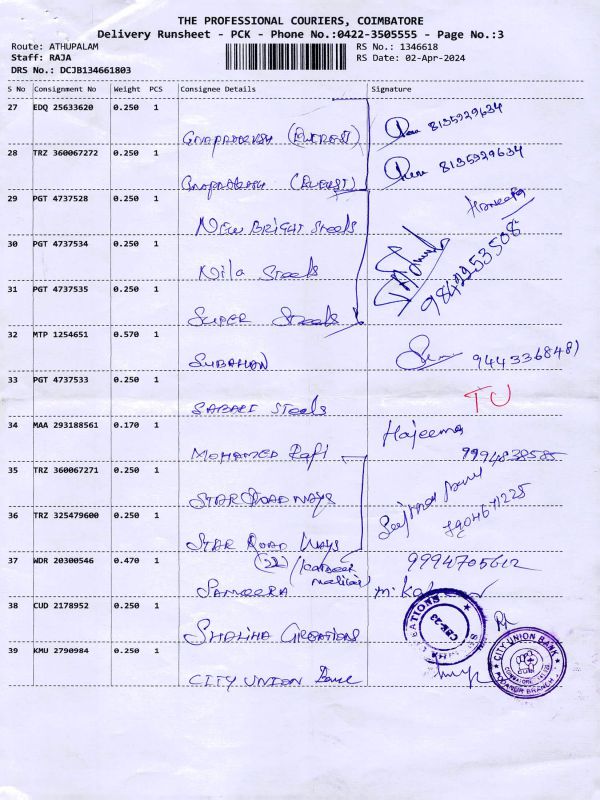 THE PROFESSIONAL COURIERS, COIMBATORE
Delivery Runsheet - PCK - Phone No.:0422-3505555 - Page No.:3
Route: ATHUPALAM
RS No.: 1346618
Staff: RAJA
RS Date: 02-Apr-2024
DRS No.: DCJB134661803
S No Consignment No Weight PCS Consignee Details Signature
27 EDQ 25633620 0.250 1
8135929634
28 TRZ 360067272 0.250 1
8135929634
29 PGT 4737528 0.250 1
NEW BRIGHT Steels
30 PGT 4737534 0.250 1
Nila Steels
9842253508
31 PGT 4737535 0.250 1
SUPER Steels
32 MTP 1254651 0.570 1
SUBAHAN
33 PGT 4737533 0.250 1
TU
SABARI Steels
34 MAA 293188561 0.170 1
Hajeema
MOHAMED Rafi
9994838585
35 TRZ 360067271 0.250 1
STAR ROAD WAYS
7904671225
36 TRZ 325479600 0.250 1
STAR ROAD WAYS
37 WDR 20300546 0.470 1
9994705612
(22)
SAMEERA
38 CUD 2178952 0.250 1
SHALIHA CREATIONS
39 KMU 2790984 0.250 1
CITY UNION BANK
CITY UNION Bank